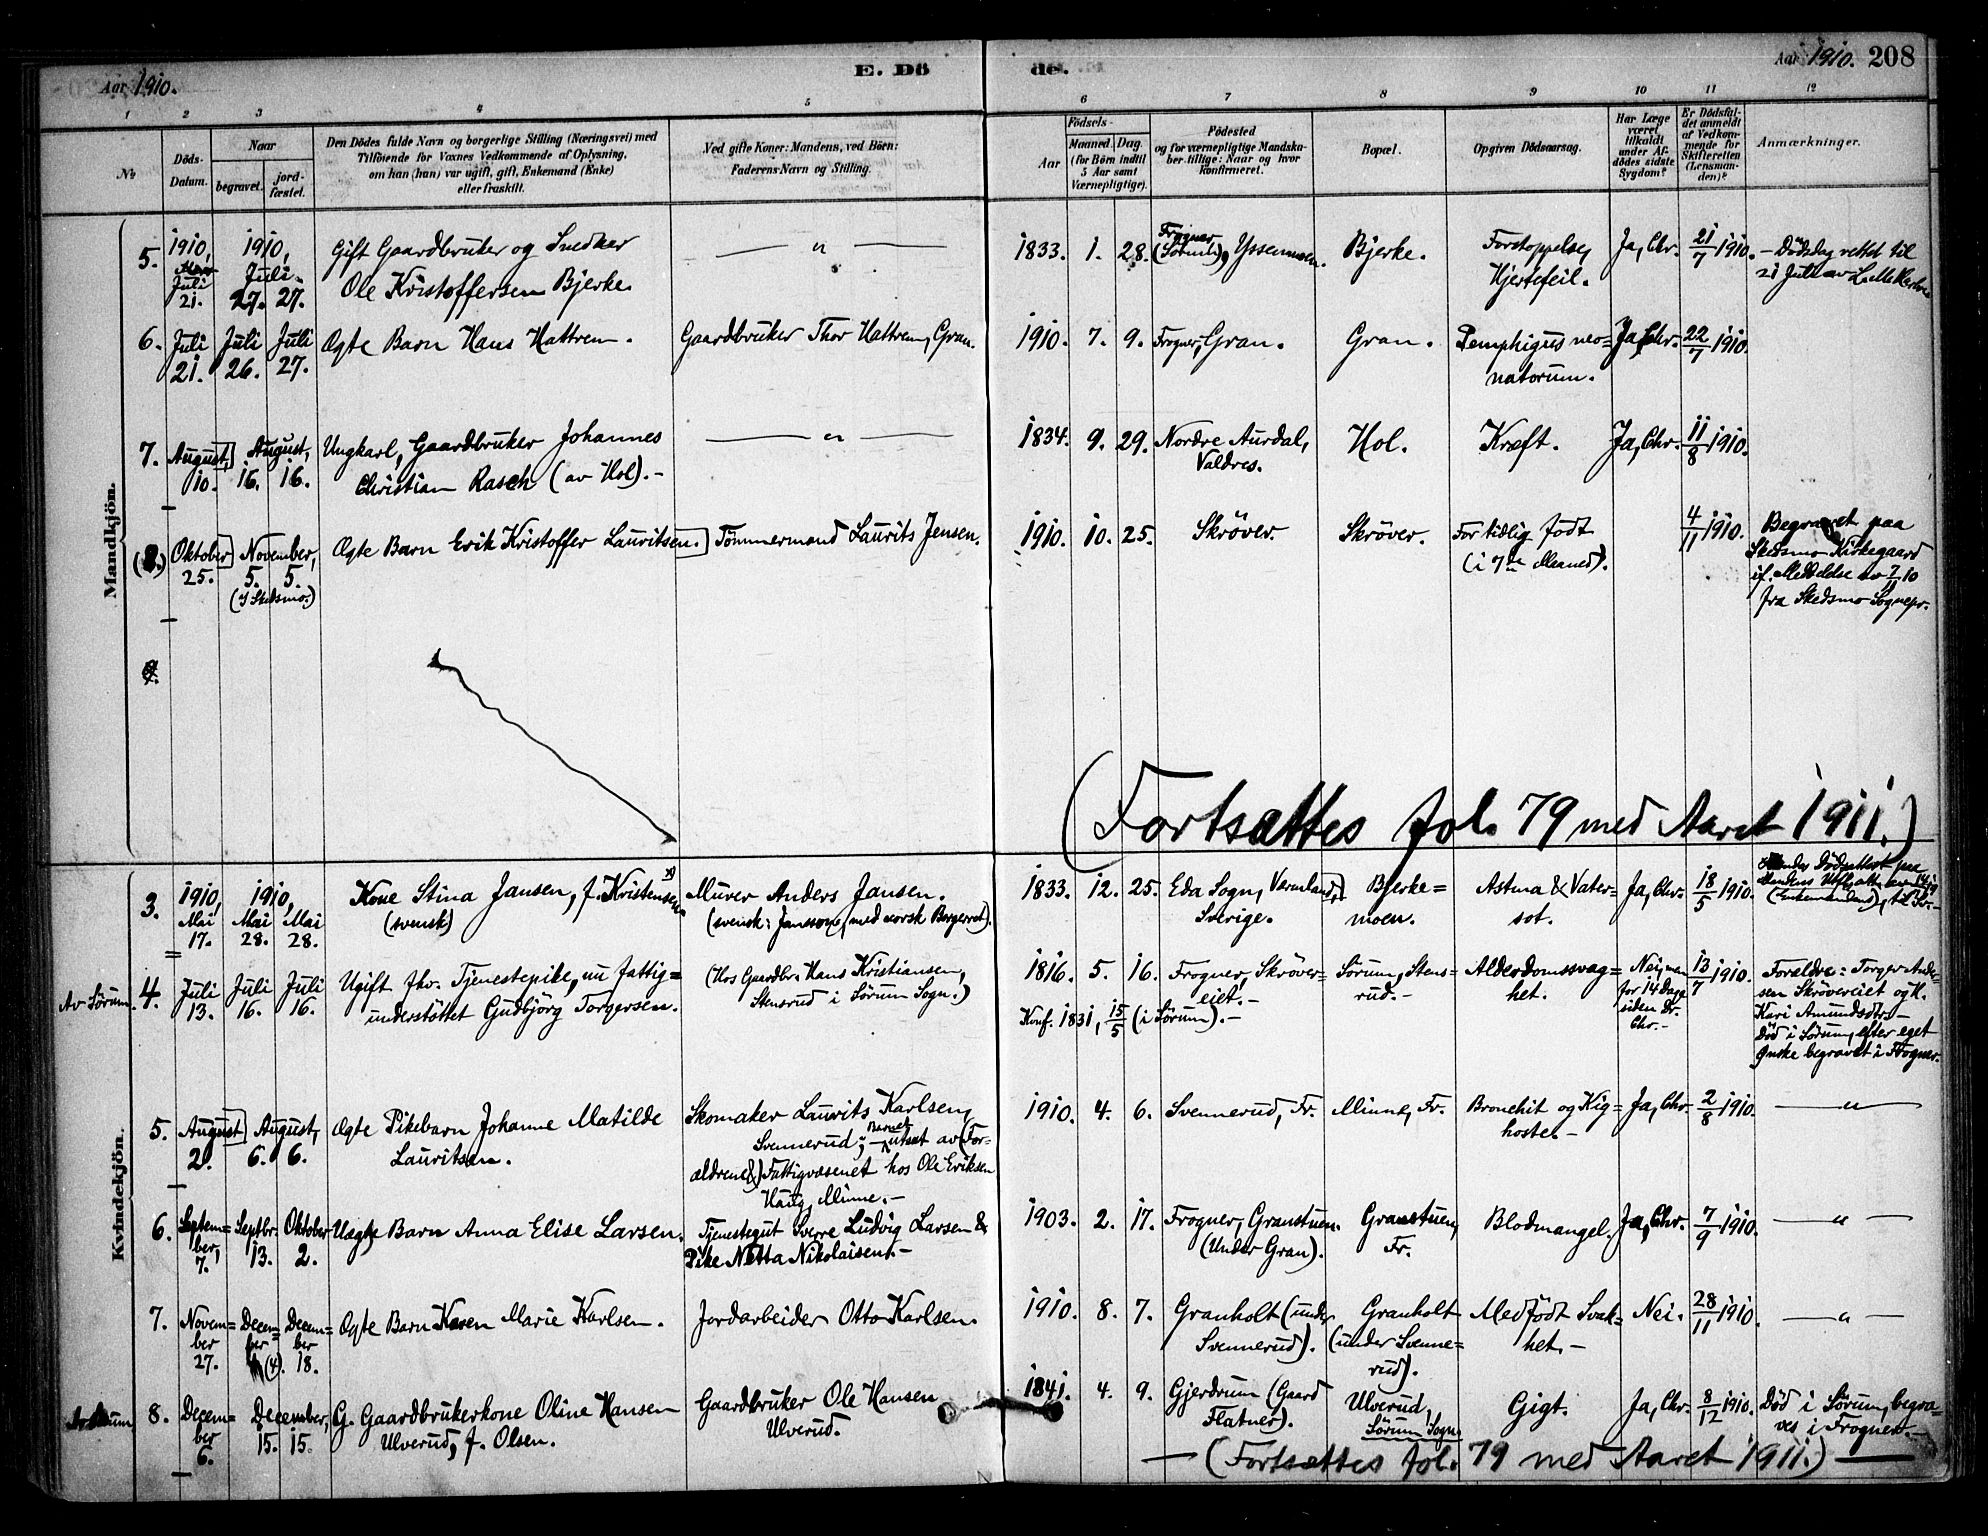 Aar 1910.
E. Dö
de.
Aar 1910. 208
1 2 3 4 5 6 7 8 9 10 11 12
No
Döds-
Datum.
Naar
begravet.
jord-
fæstet.
Den Dödes fulde Navn og borgerlige Stilling (Næringsvei) med
Tilföiende for Voxnes Vedkommende af Oplysning,
om han (hun) var ugift, gift, Enkemand (Enke)
eller fraskilt.
Ved gifte Koner: Mandens, ved Börn:
Faderens Navn og Stilling.
Födsels-
Aar
Maaned. Dag.
(for Börn indtil
5 Aar samt
Værnepligtige).
Födested
og for værnepligtige Mandska-
ber tillige: Naar og hvor
konfirmeret.
Bopæl.
Opgiven Dödsaarsag.
Har Læge
været
tilkaldt
under Af-
dödes sidste
Sygdom?
Er Dödsfal-
det anmeldt
af Vedkom-
mende for
Skifteretten
(Lensman-
den)?
Anmærkninger.
Mandkjön.
5.
1910,
Juli
21.
1910,
Juli
27. 27.
Gift Gaardbruker og Snedker
Ole Kristoffersen Bjerke.
— „ —
1833. 1. 28.
Frogner
(Sørum),
Bjerke.
Forstoppelse,
Hjertefeil.
Ja, Chr.
21/7 1910.
– Dödsdag rettet til
21 Juli av
6.
Juli
21.
Juli
26.
Juli
27.
Ægte Barn Hans Hattrem.
Gaardbruker Thor Hattrem, Gran.
1910. 7. 9.
Frogner, Gran.
Gran.
Pemphigus neo=
natorum.
Ja, Chr.
22/7 1910.
7.
August,
10.
August,
16. 16.
Ungkarl, Gaardbruker Johannes
Christian Rasch (av Hol).–
— „ —
1834. 9. 29.
Nordre Aurdal,
Valdres.
Hol.
Kræft.
Ja, Chr.
11/8 1910.
(8.)
Oktober
25.
November,
5. 5.
(I Skedsmo.)
Ægte Barn Erik Kristoffer Lauritsen.
Tömmermand Laurits Jensen.
1910. 10. 25.
Skröver.
Skröver.
For tidlig födt
(i 7de Maaned).
4/11 1910.
Begravet paa
Skedsmo Kirkegaard
if. Meddelse av 7/11 10
fra Skedsmo Sognepr.
9.
(Fortsættes fol. 79 med Aaret 1911.)
Kvindekjön.
3.
1910,
Mai
17.
1910,
Mai
28.
Mai
28.
Kone Stina Jansen, f. Kristensen x)
(svensk)
Murer Anders Jansen.
(svensk: Jansson, med norsk Borgerret).
1833. 12. 25.
Eda Sogn, Værmland,
Sverige.
Bjerke=
moen.
Astma & Vater-
sot.
Ja, Chr.
18/5 1910.
Dödsattest paa
(Enkemandens), til
Av Sörum.
4.
Juli
13.
Juli
16.
Juli
16.
Ugift fhv. Tjenestepike, nu fattig=
understöttet Gudbjörg Torgersen.
(Hos Gaardbr. Hans Kristiansen,
Stensrud i Sörum Sogn.)
1816. 5. 16.
Frogner, Skröver-
eiet.–
Konf. 1831, 15/5 (i Sörum).–
Sörum, Stens-
rud.–
Alderdomssvag=
het.
Nei, men
for 14 Dage
siden Dr.
Chr.–
13/7 1910.
Forældre: Torger Ander-
sen Skrövereiet og H.
Kari Amundsdtr.–
Död i Sörum, efter eget
Ønske begravet i Frogner.
5.
August
2.
August,
6. 6.
Ægte Pikebarn Johanne Matilde
Lauritsen.
Skomaker Laurits Karlsen,
Svennerud; – Barnet utsat av (For-
ældrene &) Fattigvæsenet hos Ole Eriksen
Haug, Minne.–
1910. 4. 6.
Svennerud, Fr.
Minne, Fr.
Bronchit og Kig=
hoste.–
Ja, Chr.
2/8 1910.
— „ —
6.
Septem=
ber,
7.
Septbr.
13.
Oktober
2.
Uægte Barn Anna Elise Larsen.
Tjenestegut Sverre Ludvig Larsen &
Pike Netta Nikolaisen.–
1903. 2. 17.
Frogner, Granstuen.
(Under Gran).
Granstuen,
Fr.
Blodmangel.
Ja, Chr.
7/9 1910.
— „ —
7.
Novem=
ber
27.
Decem=
ber
(4).
Decem=
ber
18.
Ægte Barn Karen Marie Karlsen.
Jordarbeider Otto Karlsen.
1910. 8. 7.
Granholt (under
Svennerud).
Granholt
(under Svenne=
rud).
Medfödt Svak-
het.–
Nei.
28/11 1910.
— „ —
Av Sörum
8.
Decem=
ber
6.
December,
15. 15.
G. Gaardbrukerkone Oline Hansen
Ulverud, f. Olsen.
Gaardbruker Ole Hansen
Ulverud.
1841. 4. 9.
Gjerdrum (Gaard
Flatner).
Ulverud,
Sörum Sogn.
Gigt.
Ja, Chr.
8/12 1910.
Död i Sörum, begra=
ves i Frogner.–
— (Fortsættes fol. 79 med Aaret 1911.) —